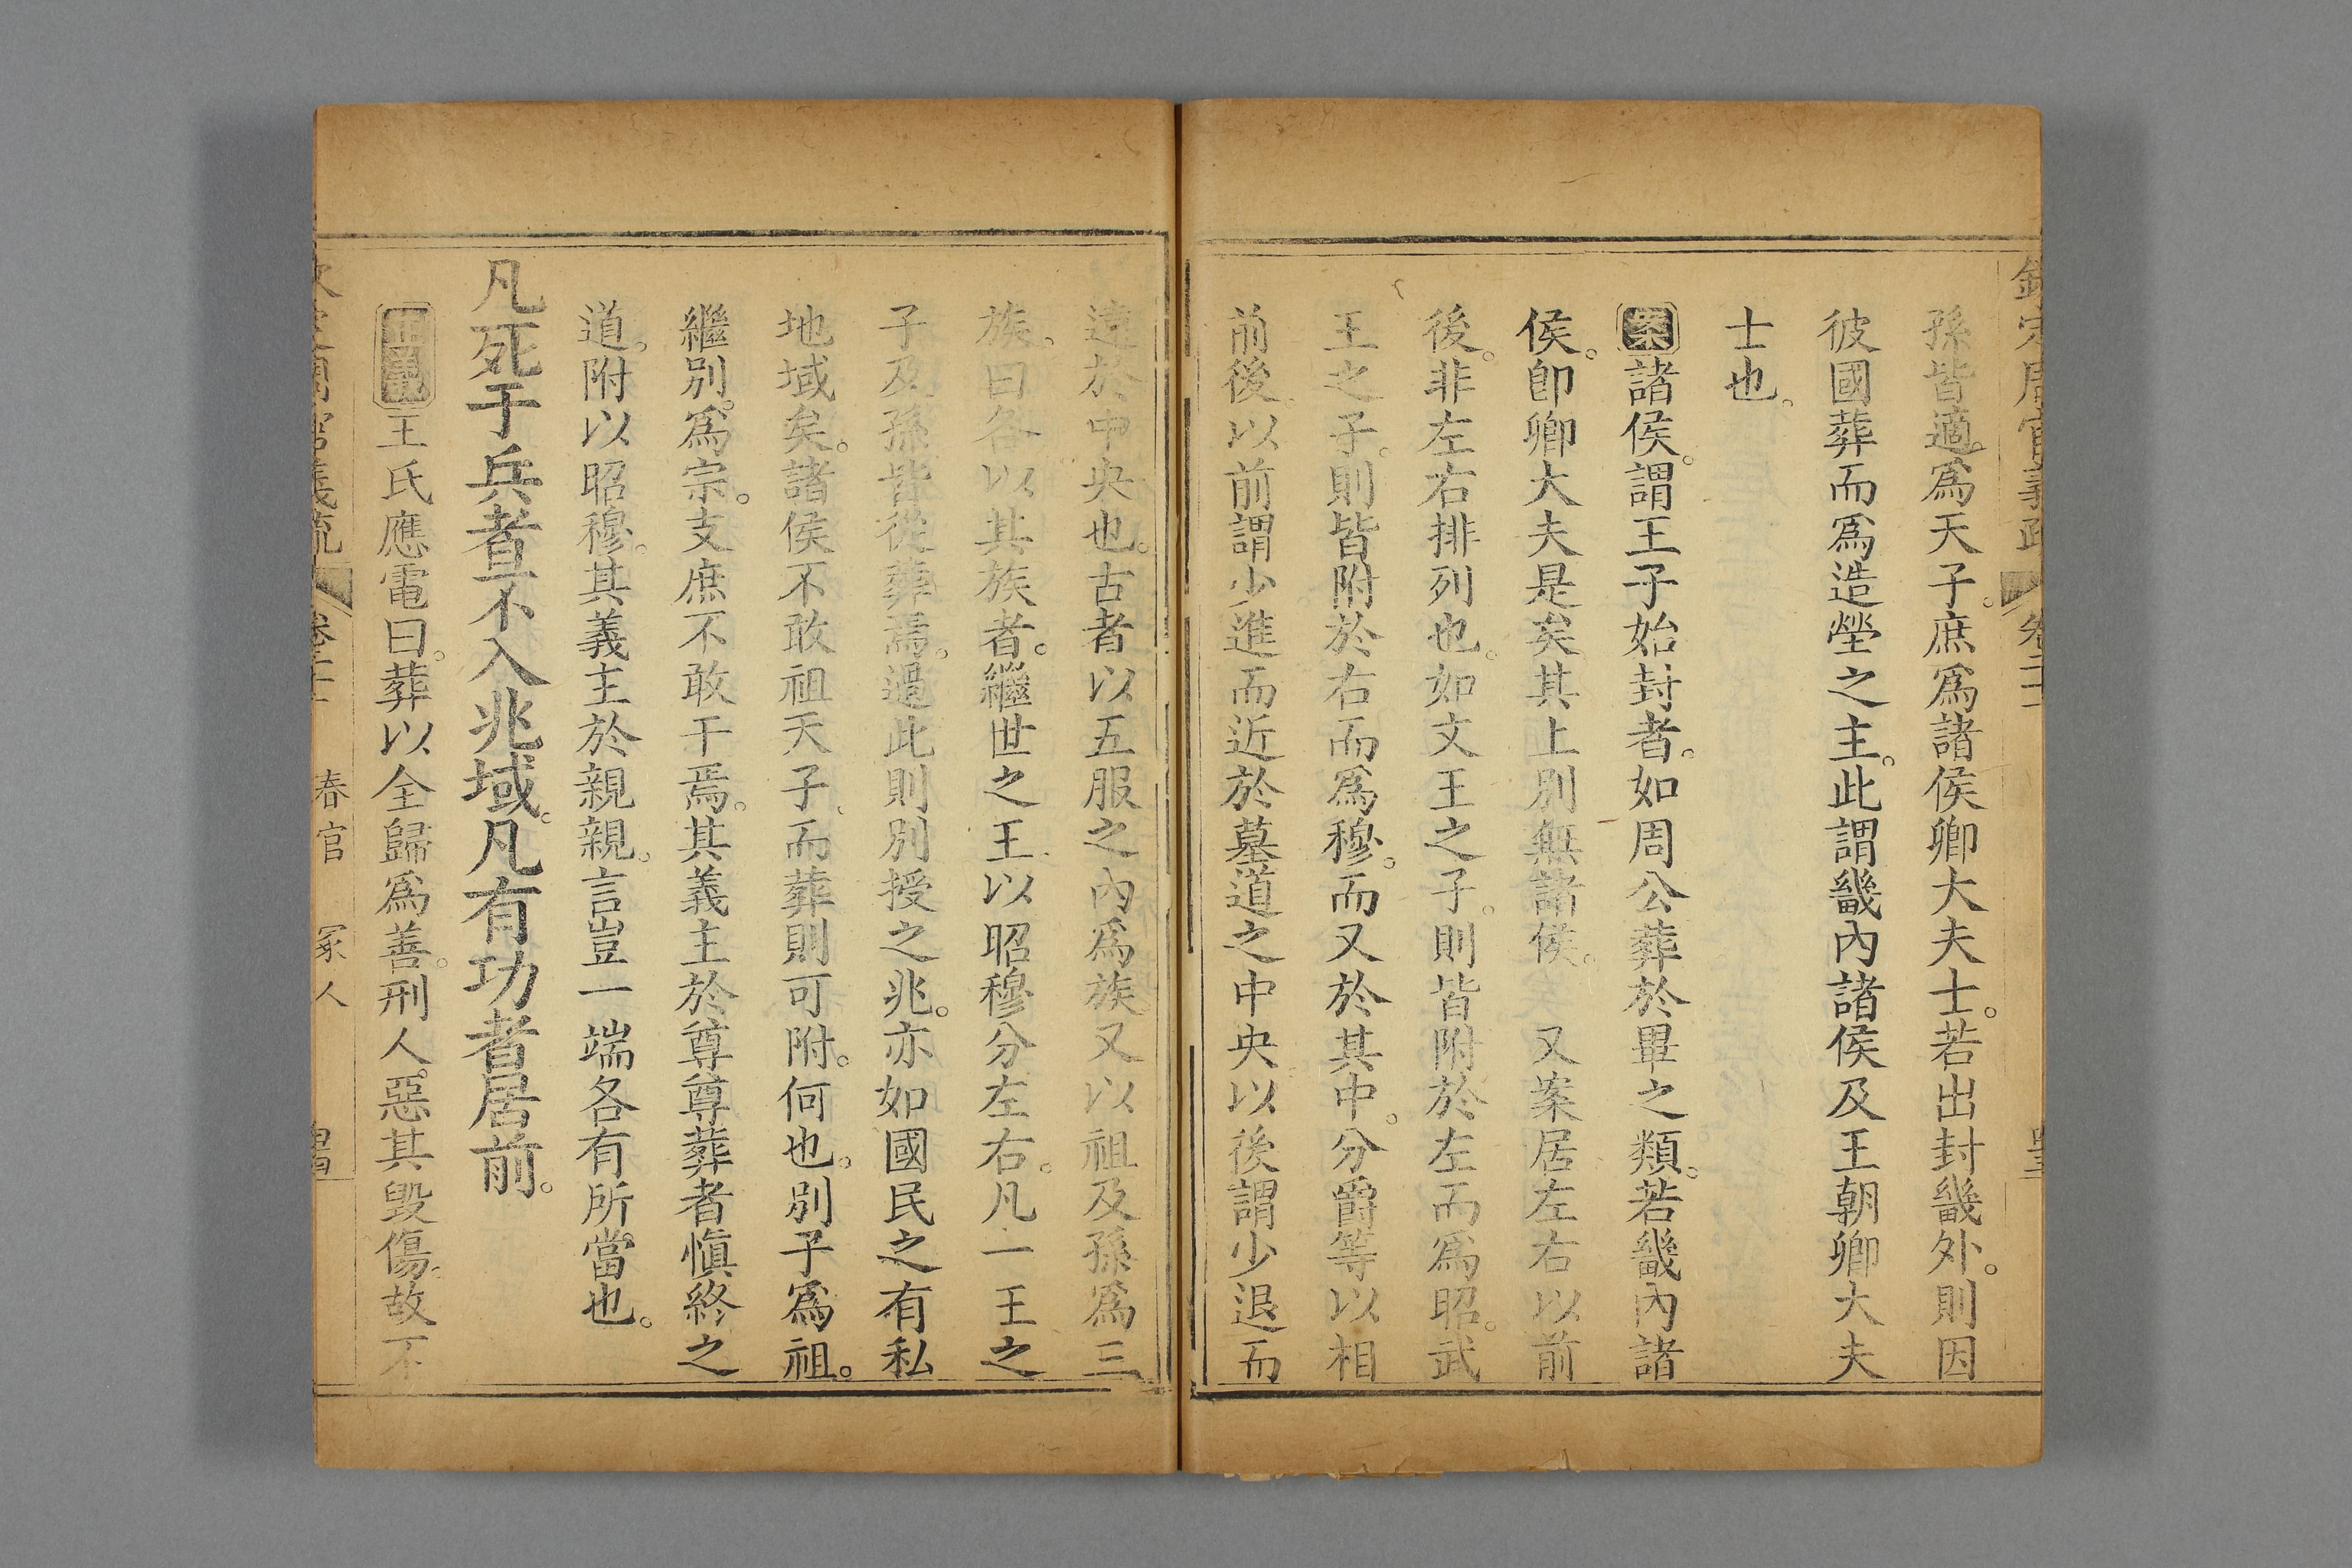 孫皆適。爲天子。庶爲諸侯卿大夫士。若出封畿外。則因
彼國葬而爲造塋之主。此謂畿內諸侯及王朝卿大夫
士也。
案諸侯。謂王子始封者。如周公葬於畢之類。若畿內諸
侯。卽卿大夫是矣。其上別無諸侯。 又案居左右以前
後。非左右排列也。如文王之子。則皆附於左而爲昭。武
王之子。則皆附於右而爲穆。而又於其中。分爵等以相
前後。以前謂少進而近於墓道之中央。以後謂少退而
遠於中央也。古者以五服之內爲族。又以祖及孫爲三
族。曰各以其族者。繼世之王。以昭穆分左右。凡一王之
子及孫皆從葬焉。過此則別授之兆。亦如國民之有私
地域矣。諸侯不敢祖天子。而葬則可附。何也。別子爲祖。
繼別。爲宗。支庶不敢干焉。其義主於尊尊。葬者愼終之
道。附以昭穆。其義主於親親。言豈一端各有所當也。
凡死于兵者不入兆域。凡有功者居前。
正義王氏應電曰。葬以全歸爲善。刑人。惡其毀傷。故不
春官 冢人